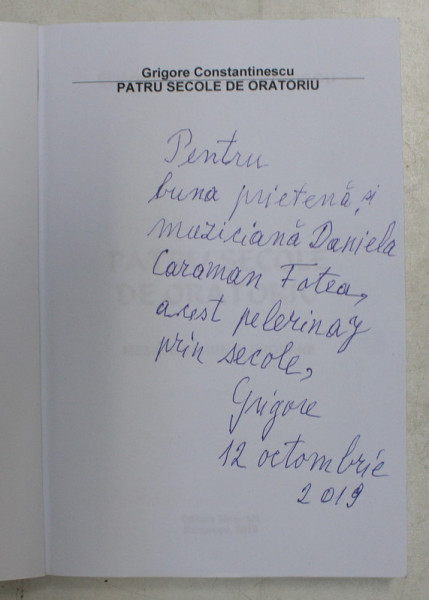 Grigore Constantinescu
PATRU SECOLE DE ORATORIU
Pentru
buna prietenă, și
muziciană Daniela
Caraman Fotea,
acest pelerinaj
prin secole,
Grigore
12 octombrie
2019
PATRU SECOLE
DE ORATORIU